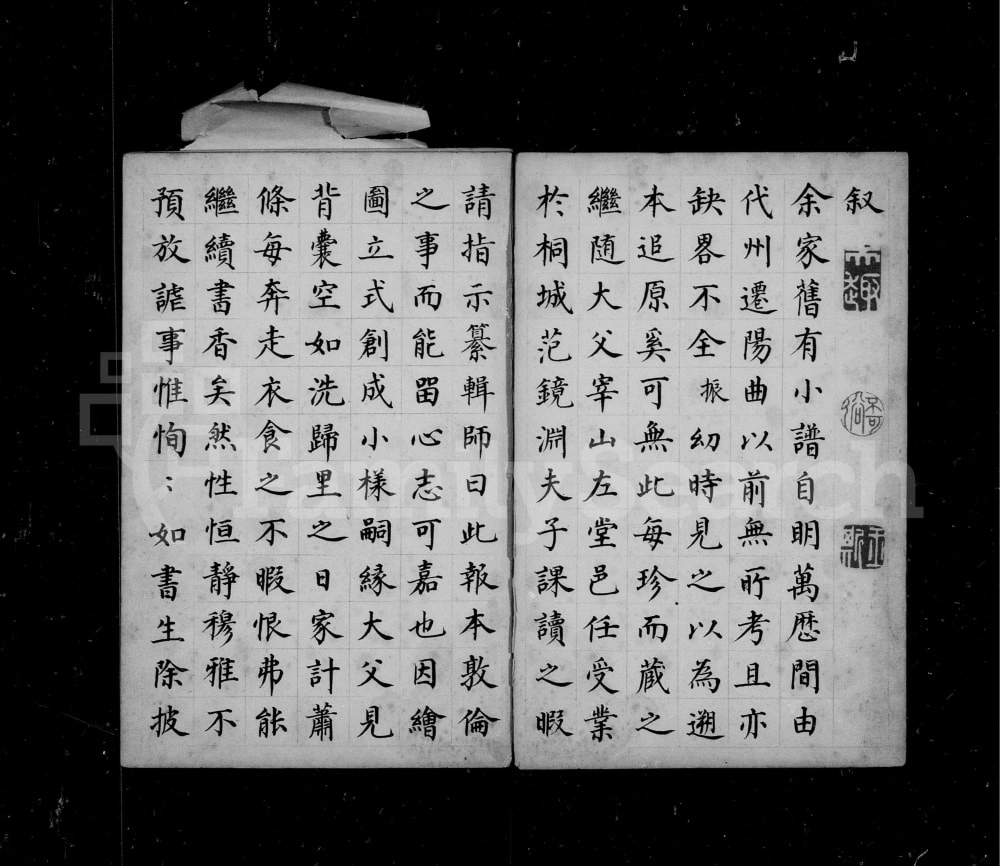 叙
余家舊有小譜自明萬歷間由
代州遷陽曲以前無所考且亦
缺畧不全振幻時見之以為遡
本追原奚可無此每珍而藏之
繼随大父宰山左堂邑任受業
於桐城范鏡淵夫子課讀之暇
請指示纂輯師曰此報本敦倫
之事而能畱心志可嘉也因繪
圖立式創成小様嗣緣大父見
背囊空如洗歸里之日家計蕭
條每奔走衣食之不暇恨弗能
繼續書香矣然性恒靜穆雅不
預放謔事惟恂〻如書生除披
FamilySearch